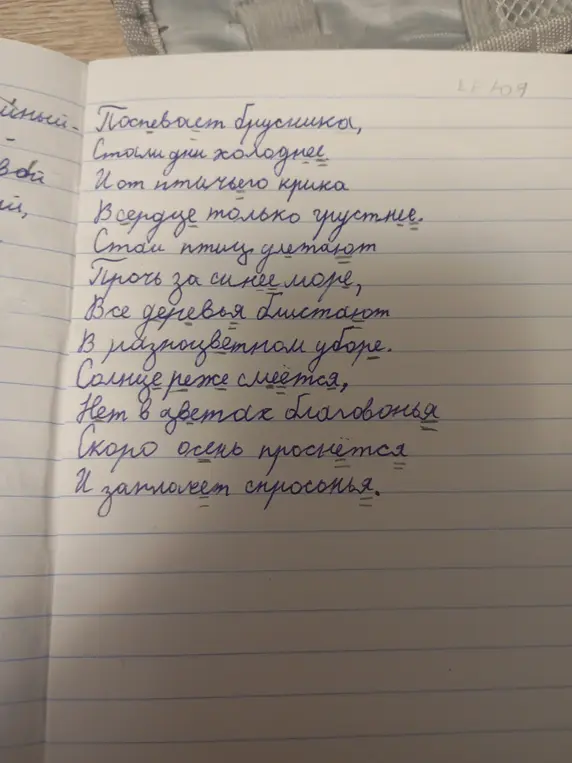 йный-
вой
ий,
Поспевает брусника,
Стали дни холоднее.
И от птичьего крика
В сердце только грустнее.
Стаи птиц улетают
Прочь за синее море,
Все деревья блистают
В разноцветном уборе.
Солнце реже смеётся,
Нет в цветах благовонья
Скоро осень проснётся
И заплачет спросонья.